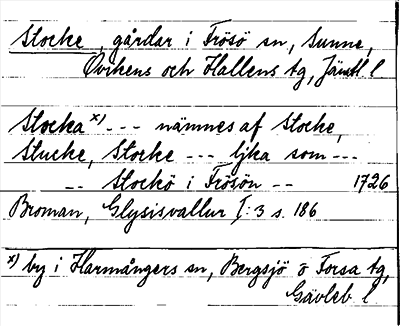 Stocke, gårdar i Frösö sn, Sunne,
Ovikens och Hallens tg, Jämtl l
Stocka x) --- nämnes af Stocke,
Stucke, Storke --- lika som ---
-- Stockö i Frösön -- 1726
Broman, Glysisvallur I:3 s. 186
x) by i Harmångers sn, Bergsjö o Forsa tg,
Gävleb l